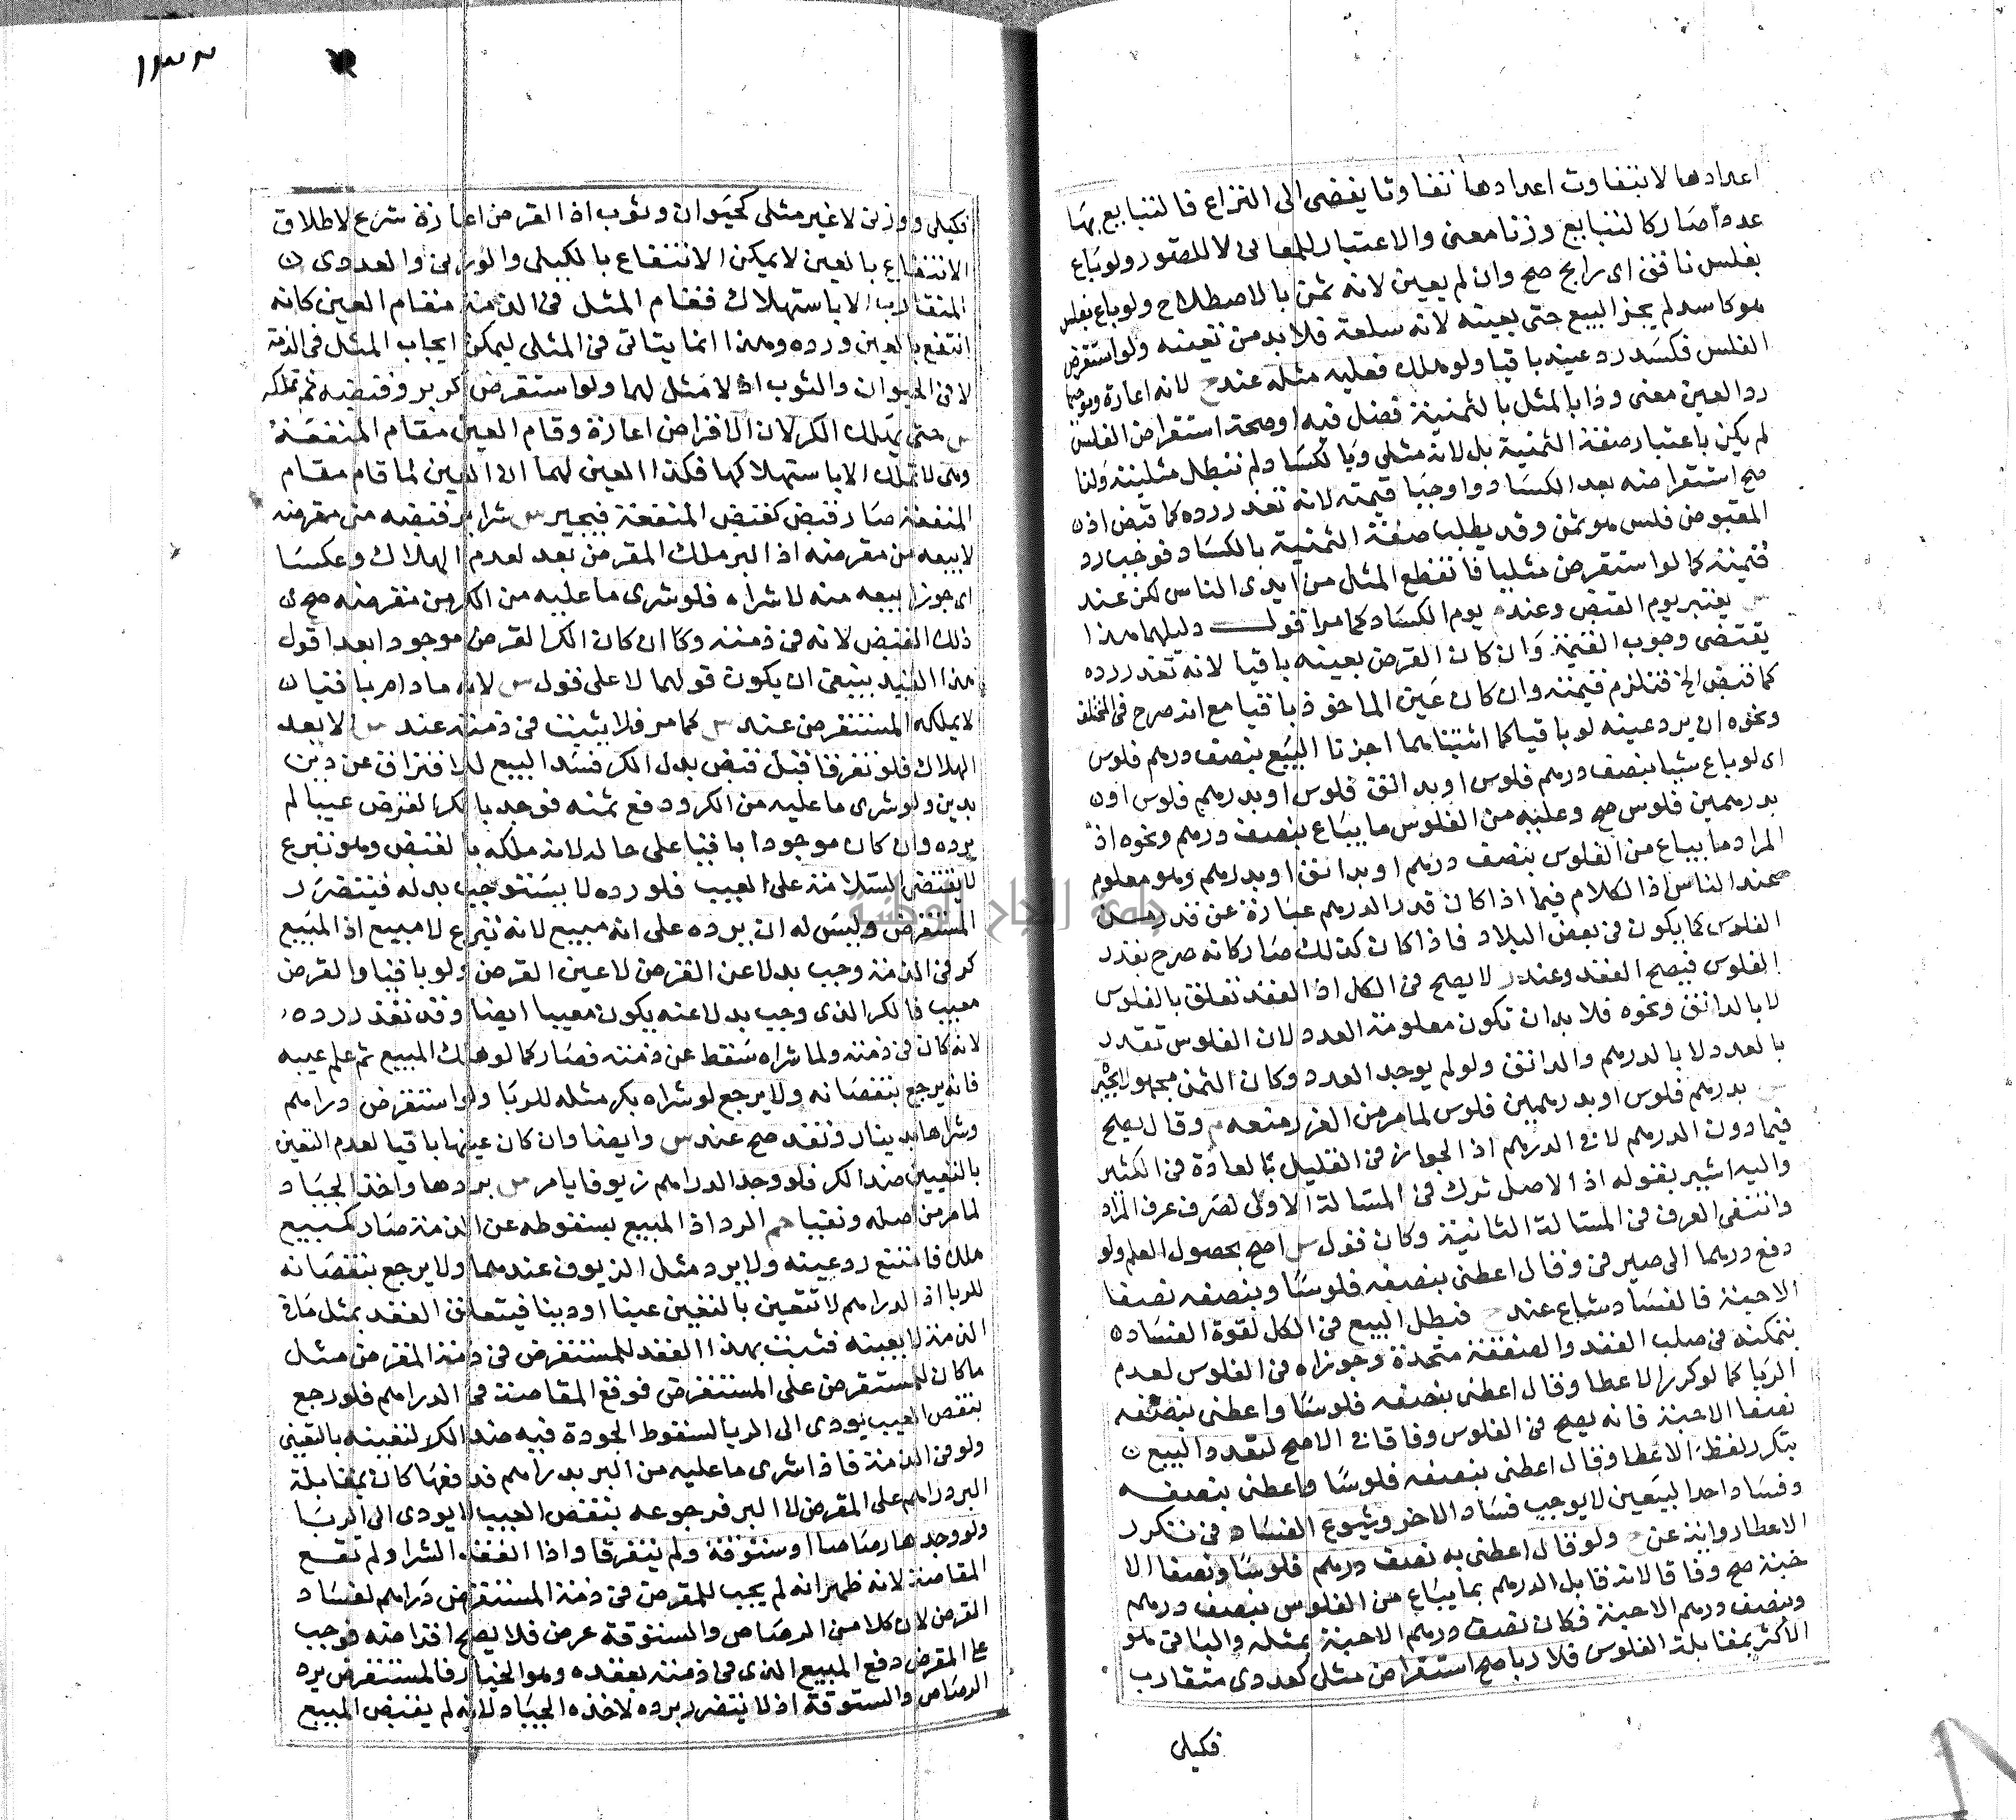 اعدادها لا بتفاوت اعدادها تفاوتا يفضى الى النزاع فالتبايع بها
عددا صار كالتبايع وزنا معنى والاعتبار للمعانى لا للصور ولو باع
بفلس نافق اى رايج صح وان لم يعين لانه ثمن بالاصطلاح ولو باع بفلس
هو كاسد لم يجز البيع حتى يعينه لانه سلعة فلا بد من تعينه ولو استقرض
الفلس فكسد رد عينه باقيا ولو هلك فعليه مثله عند ح لانه اعارة وموجبها
رد العين معنى وذا بالمثل بالثمنية فضل فيه اوصحة استقراض الفلس
لم يكن باعتبار صفة الثمنية بل لانه مثلى وبالكساد لم تبطل مثليته ولنا
صح استقراضه بعد الكساد واوجبا قيمته لانه تعذر رده كما قبض اذ
المقبوض فلس هو ثمن وقد يطلب صفة الثمنية بالكساد فوجب رد
قيمته كما لو استقرض مثليا فانقطع المثل من ايدى الناس لكن عند
س يعتبر يوم القبض وعند م يوم الكساد كما مر اقول دليلهما هذا
يقتضى وجوب القيمة وان كان القرض بعينه باقيا لانه تعذر رده
كما قبض الخ فتلزم قيمته وان كان عين الماخوذ باقيا مع انه صرح فى المختلف
ونحوه ان يرد عينه لو باقيا كما اثبتنا هما اجزنا البيع بنصف درهم فلوس
اى لو باع شيا بنصف درهم فلوس او بدانق فلوس او بدرهم فلوس او
بدرهمين فلوس صح وعليه من الفلوس ما يباع بنصف درهم ونحوه اذ
المراد ما يباع من الفلوس بنصف درهم او بدانق او بدرهم وهو معلوم
عند الناس اذ الكلام فيما اذا كان قدر الدرهم عبارة عن قدر من
الفلوس كما يكون فى بعض البلاد فاذا كان كذلك صار كانه صرح بقدر
الفلوس فيصح العقد وعند ر لا يصح فى الكل اذ العقد تعلق بالفلوس
لا بالدانق ونحوه فلا بد ان تكون معلومة العدد لان الفلوس تقدر
بالعدد لا بالدرهم والدانق ولو لم يوجد العدد وكان الثمن مجهولا يجيز
س بدرهم فلوس او بدرهمين فلوس لما مر من الغرر منعه م وقال يصح
فيما دون الدرهم لا فى الدرهم اذ الجواز فى القليل بالعادة فى الكثير
واليه اشير بقوله اذ الاصل ترك فى المسالة الاولى لصرف عرف المراد
وانتفى العرف فى المسالة الثانية وكان قول س اصح بحصول العلم ولو
دفع درهما الى صيرفى وقال اعطنى بنصفه فلوسا وبنصفه نصفا
الاحبة فالفساد شاع عند ح فبطل البيع فى الكل لقوة الفساد
بتمكنه فى صلب العقد والصفقة متحدة وجوزاه فى الفلوس لعدم
الربا كما لو كرر الاعطا وقال اعطنى بنصفه فلوسا واعطنى بنصفه
نصفا الاحبة فانه يصح فى الفلوس وفاقا فى الاصح لتعدد البيع
بتكرر لفظ الاعطا وقال اعطنى بنصفه فلوسا واعطنى بنصفه
وفساد احد البيعين لا يوجب فساد الاخر وشيوع الفساد فى تكرر
الاعطا رواية عن ح ولو قال اعطنى به نصف درهم فلوسا ونصفا الا
حبة صح وفاقا لانه قابل الدرهم بما يباع من الفلوس بنصف درهم
ونصف درهم الاحبة فكان نصف درهم الاحبة بمثله والباقى هو
الاكثر بمقابلة الفلوس فلا ربا صح استقراض مثلى كعددى متقارب
فكيلى
١٣٣
فكيلى ووزنى لا غير مثلى كحيوان وثوب اذ القرض اعارة شرع لاطلاق
الانتفاع بالعين لا يمكن الانتفاع بالكيلى والوزنى والعددى
المتقارب الا باستهلاك فقام المثل فى الذمة مقام العين كانه
انتفع بالعين ورده وهذا انما يتاتى فى المثلى ليمكن ايجاب المثل فى الذمة
لا فى الحيوان والثوب اذ لا مثل لهما ولو استقرض كر بر وقبضه لم تملكه
س حتى يهلك الكر لان الاقراض اعارة وقام العين مقام المنفعة
وهى لا تملك الا باستهلاكها فكذا العين لهما ان العين لما قام مقام
المنفعة صار قبض كقبض المنفعة فيجيز س شرا بر قبضه من مقرضه
لا بيعه من مقرضه اذ البر ملك المقرض بعد لعدم الهلاك وعكسا
اى جوزا بيعه منه لا شراه فلو شرى ما عليه من الكر من مقرضه صح
ذلك القبض لانه فى ذمته وكا ان كان الكر القرض موجودا بعد اقول
هذا القيد ينبغى ان يكون قولهما لا على قول س لانه ما دام باقيا
لا يملكه المستقرض عند س كما مر فلا يثبت فى ذمته عند س الا بعد
الهلاك فلو تفرقا قبل قبض بدل الكر فسد البيع للافتراق عن دين
بدين ولو شرى ما عليه من الكر ودفع ثمنه فوجد بالكر القرض عيبا لم
يرده وان كان موجودا باقيا على حاله لانه ملكه بالقبض وهو تبرع
لا يقتضى السلامة على العيب فلو رده لا يستوجب بدله فيتضرر
المستقرض وليس له ان يرده على انه مبيع لانه تبرع لا مبيع اذ المبيع
كر فى الذمة وجب بدلا عن القرض لا عين القرض ولو باقيا والقرض
معيب فالكر الذى وجب بدلا عنه يكون معيبا ايضا وقد تعذر رده
لانه كان فى ذمته ولما شراه سقط عن ذمته فصار كما لو هلك المبيع ثم علم عيبه
فانه يرجع بنقصانه ولا يرجع لو شراه بكر مثله للربا ولو استقرض دراهم
وشراها بدينار ونقد صح عند س وايضا وان كان عينها باقيا لعدم التعين
بالتعيين ضد الكر فلو وجد الدراهم زيوفا يامر س بردها واخذ الجياد
لما مر من اصله ونفيا هم الرد اذ المبيع بسقوطه عن الذمة صار كمبيع
هلك فامتنع رد عينه ولا يرد مثل الزيوف عندهما ولا يرجع بنقصانه
للربا اذ الدراهم لا تتعين بالتعين عينا او دينا فيتعلق العقد بمثل ما فى
الذمة لا بعينه فثبت بهذا العقد للمستقرض فى ذمة المقرض مثل
ما كان للمستقرض على المستقرض فوقع المقاصة فى الدراهم فلو رجع
بنقص العيب يودى الى الربا لسقوط الجودة فيه ضد الكر لتعينه بالتعيين
ولو فى الذمة فاذا شرى ما عليه من البر بدراهم فدفعها كان بمقابلة
البر دراهم على المقرض لا البر فرجوعه بنقص العيب لا يودى الى الربا
ولو وجدها رصاصا او ستوقة ولم يتفرقا واذا العقد الشرا ولم تقع
المقاصة لانه ظهر انه لم يجب للمقرض فى ذمة المستقرض دراهم لفساد
القرض لان كلا من الرصاص والستوقة عرض فلا يصح اقراضه فوجب
على المقرض دفع المبيع الذى فى ذمته بعقده وهو الخيار فالمستقرض يرد
الرصاص والستوقة اذ لا يتضرر برده لاخذه الجياد لانه لم يقبض المبيع